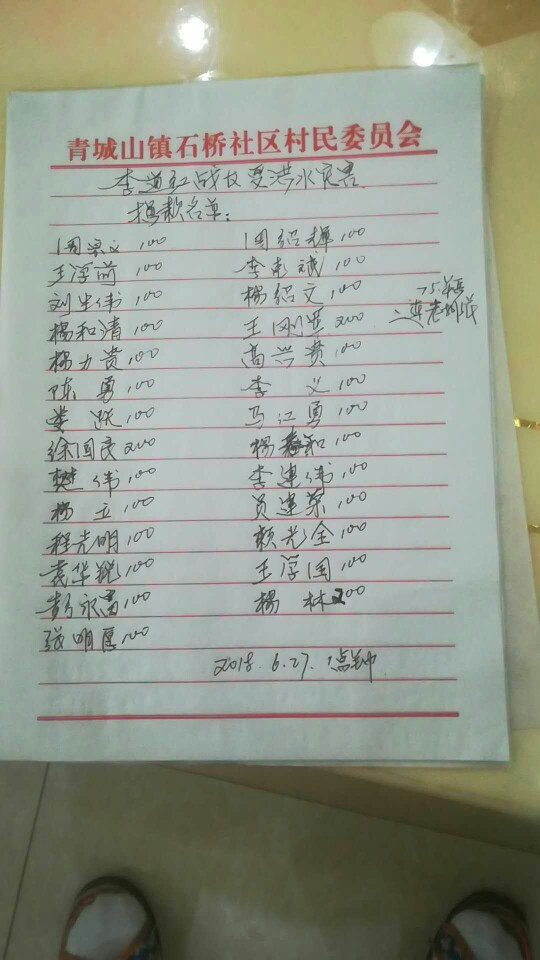 青城山镇石桥社区村民委员会
李道红战友受洪水灾害
捐款名单:
周 文 100 周绍辉 100
王浮前 100 李 诚 100
刘生伟 100 杨绍文 100
杨和清 100 王刚 200
杨力贵 100 高兴贵 100
陈 勇 100 李 义 100
娄 跃 100 马江勇 100
徐国民 200 杨 和 100
樊 伟 100 李建伟 100
杨 立 100 员建荣 100
程光明 100 赖光全 100
袁华锐 100 王浮国 100
彭永富 100 杨 林 200
张明厚 100
2018.6.27. 点钟